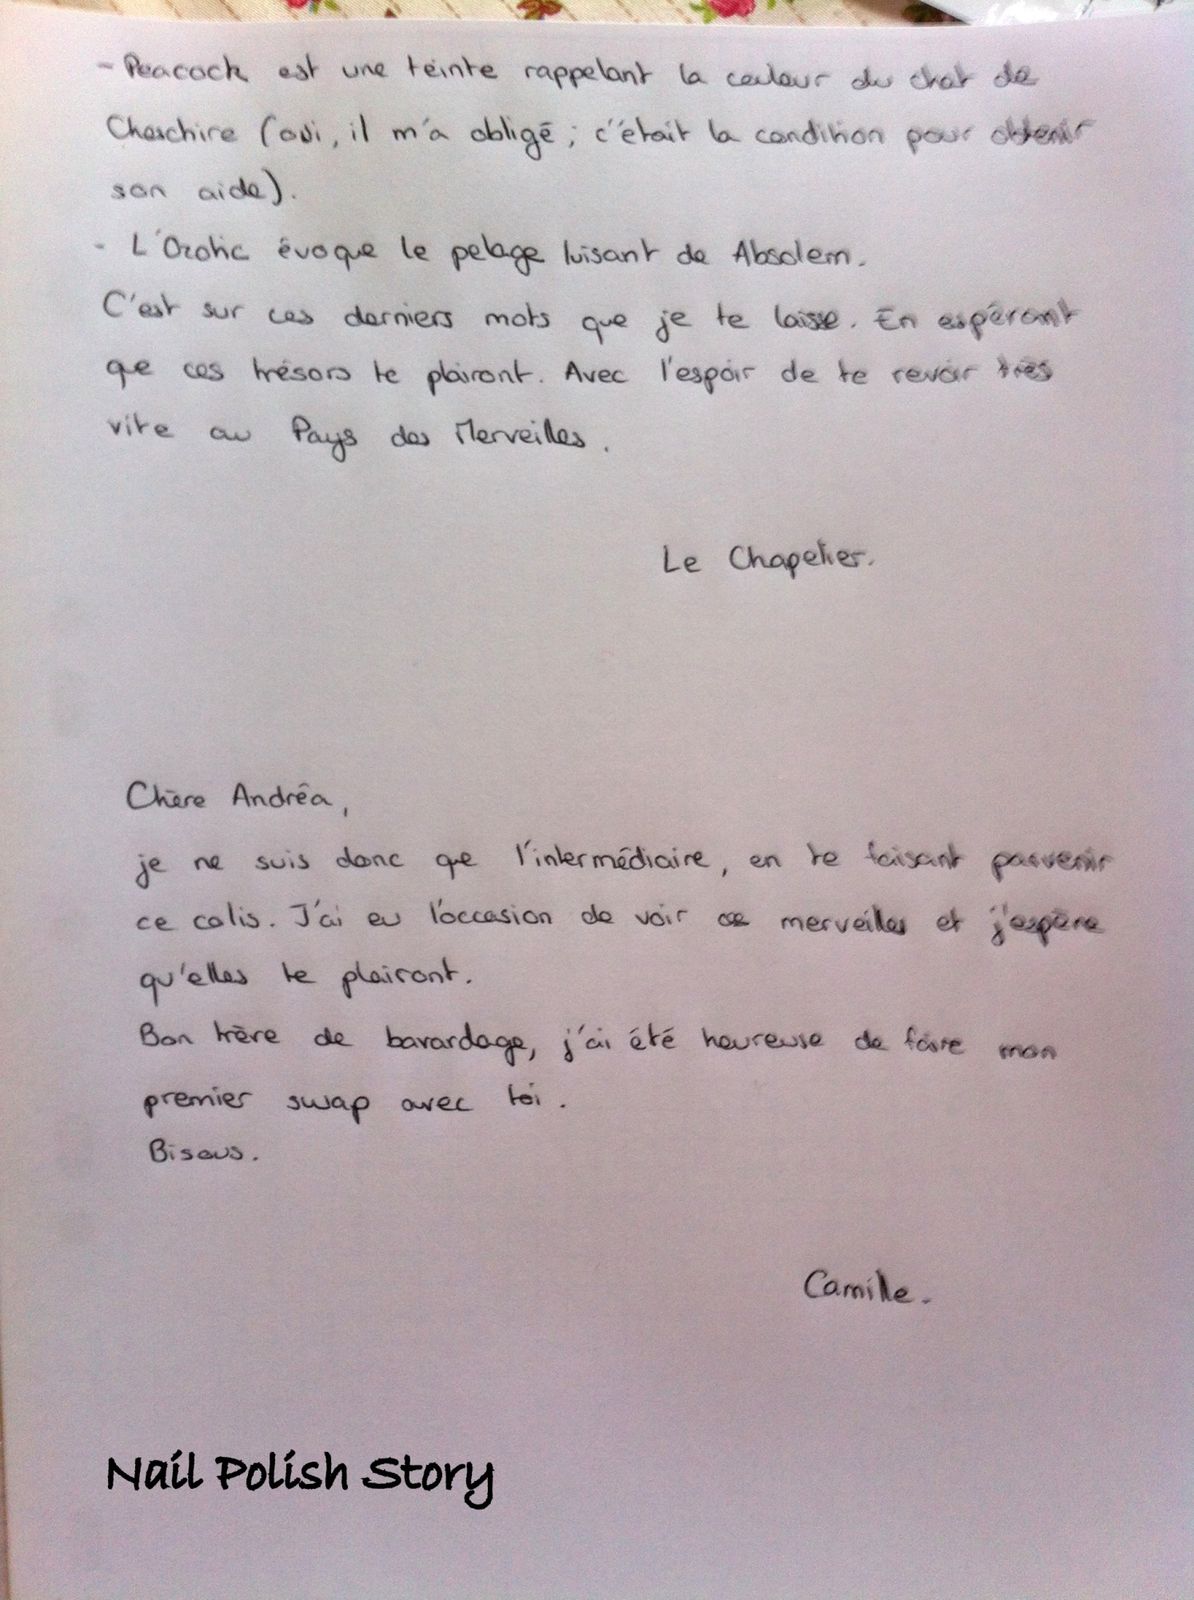 - Peacock est une teinte rappelant la couleur du chat de
Cheschire (oui, il m'a obligé ; c'était la condition pour obtenir
son aide).
- L'Orotic évoque le pelage luisant de Absolem.
C'est sur ces derniers mots que je te laisse. En espérant
que ces trésors te plairont. Avec l'espoir de te revoir très
vite au Pays des Merveilles.
Le Chapelier.
Chère Andréa,
je ne suis donc que l'intermédiaire, en te faisant parvenir
ce colis. J'ai eu l'occasion de voir ce merveilles et j'espère
qu'elles te plairont.
Bon trève de bavardage, j'ai été heureuse de faire mon
premier swap avec toi.
Bisous.
Camille.
Nail Polish Story